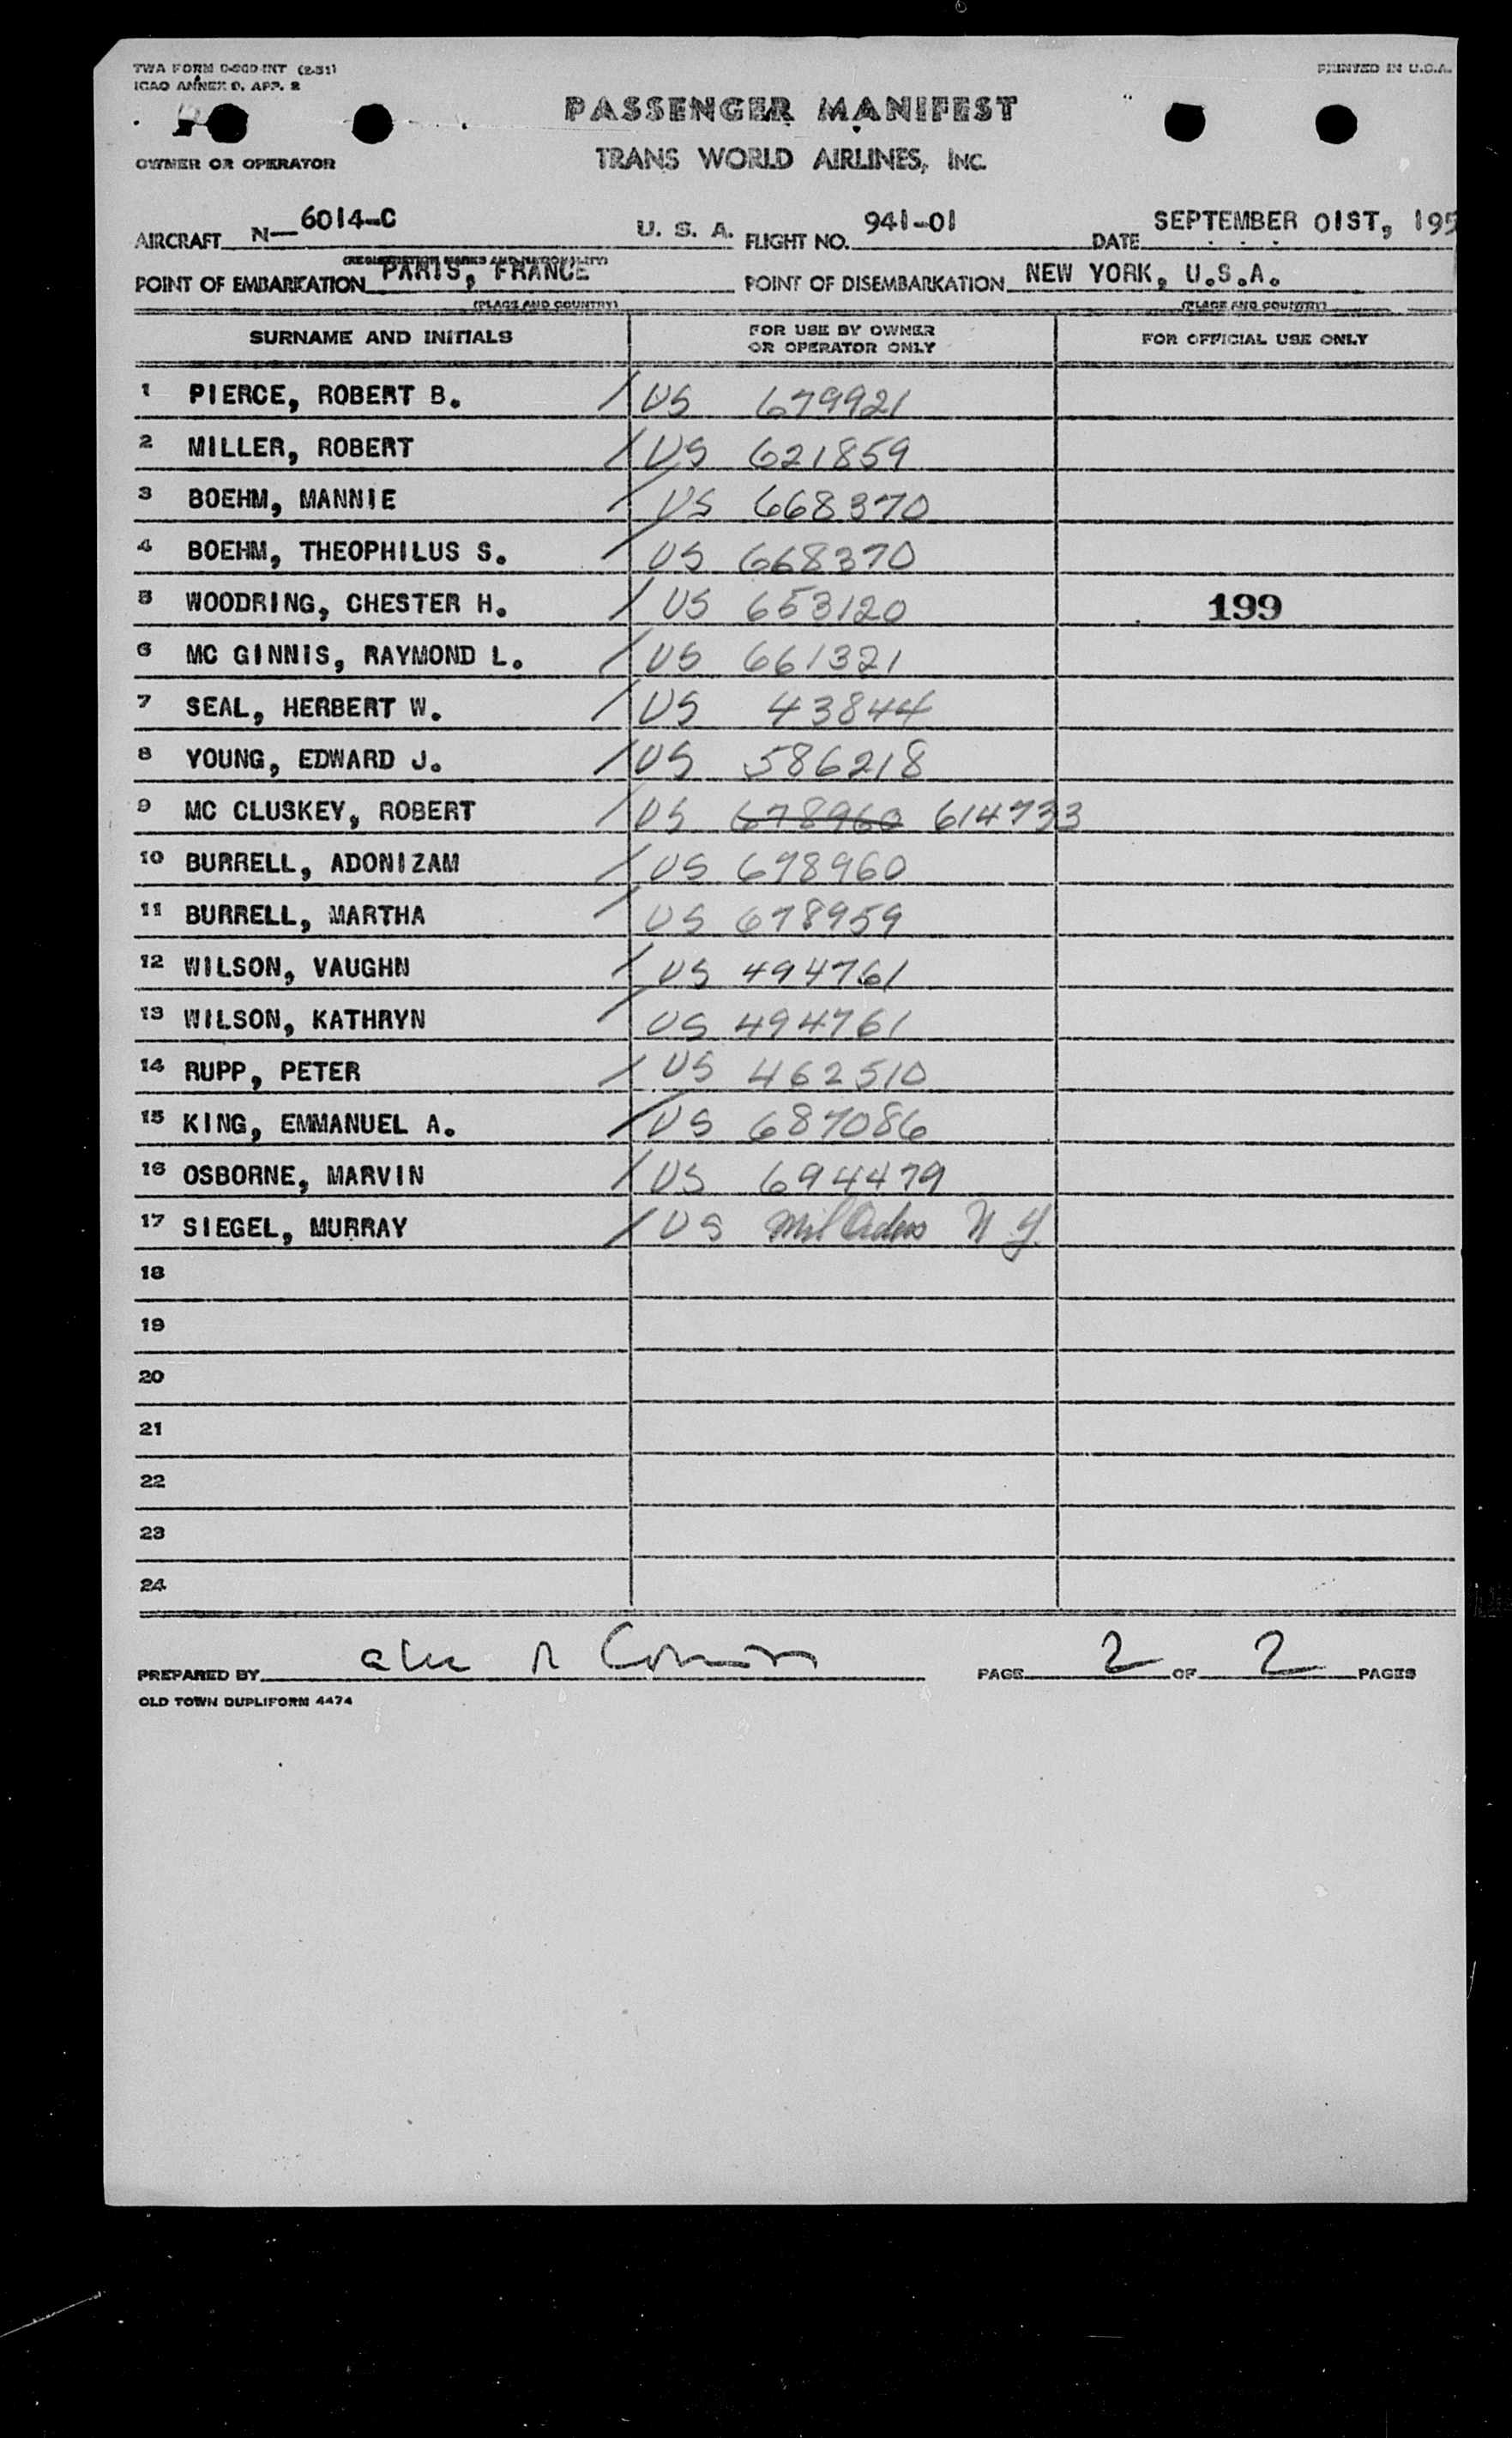 TWA FORM O-90D-INT (2-51)
PRINTED IN U.S.A.
ICAO ANNEX 9, APP. 2
PASSENGER MANIFEST
OWNER OR OPERATOR
TRANS WORLD AIRLINES, INC.
AIRCRAFT N-6014-C U. S. A. FLIGHT NO. 941-01 DATE SEPTEMBER 01ST, 195
(REGISTRATION MARKS AND NATIONALITY)
POINT OF EMBARKATION PARIS, FRANCE POINT OF DISEMBARKATION NEW YORK, U.S.A.
(PLACE AND COUNTRY) (PLACE AND COUNTRY)
SURNAME AND INITIALS FOR USE BY OWNER OR OPERATOR ONLY FOR OFFICIAL USE ONLY
1 PIERCE, ROBERT B. / US 679921
2 MILLER, ROBERT / US 621859
3 BOEHM, MANNIE / US 668370
4 BOEHM, THEOPHILUS S. / US 668370
5 WOODRING, CHESTER H. / US 653120 199
6 MC GINNIS, RAYMOND L. / US 661321
7 SEAL, HERBERT W. / US 43844
8 YOUNG, EDWARD J. / US 586218
9 MC CLUSKEY, ROBERT / US 678960 614733
10 BURRELL, ADONIZAM / US 678960
11 BURRELL, MARTHA / US 678959
12 WILSON, VAUGHN / US 494761
13 WILSON, KATHRYN / US 494761
14 RUPP, PETER / US 462510
15 KING, EMMANUEL A. / US 687086
16 OSBORNE, MARVIN / US 694479
17 SIEGEL, MURRAY / US Mil Orders N Y.
18
19
20
21
22
23
24
PREPARED BY PAGE 2 OF 2 PAGES
OLD TOWN DUPLIFORM 4474